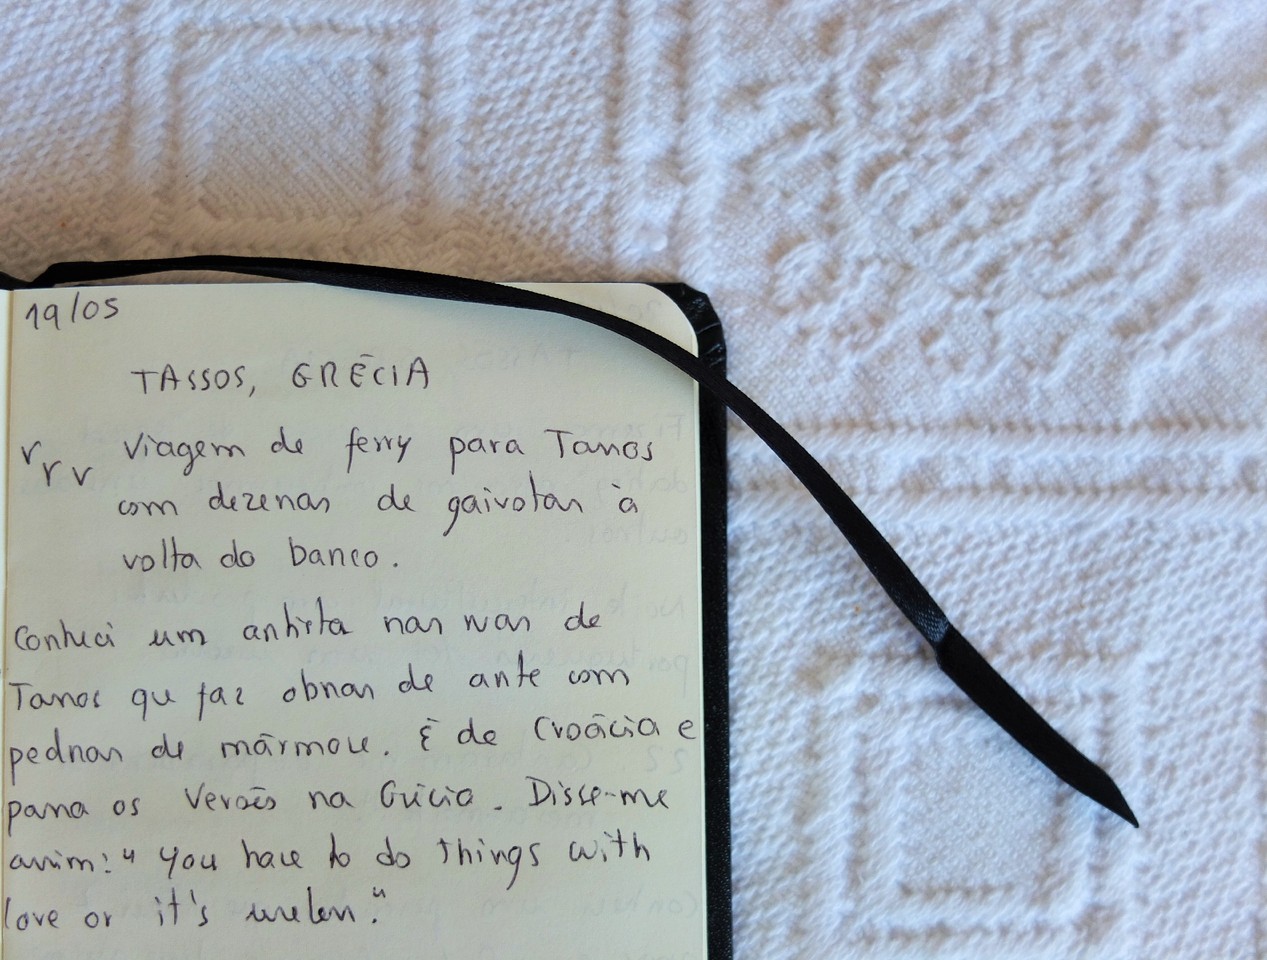 19/05
TASSOS, GRÉCIA
Viagem de ferry para Tassos
com dezenas de gaivotas à
volta do barco.
Conheci um artista nas ruas de
Tassos que faz obras de arte com
pedras de mármore. É de Croácia e
para os Verões na Grécia. Disse-me
assim: "you have to do things with
love or it's useless."